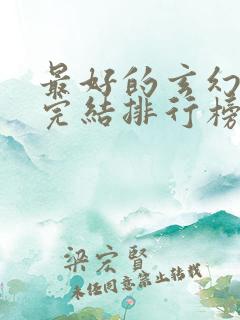 最好的玄幻
完結排行榜
梁宏賢
未经同意禁止转载